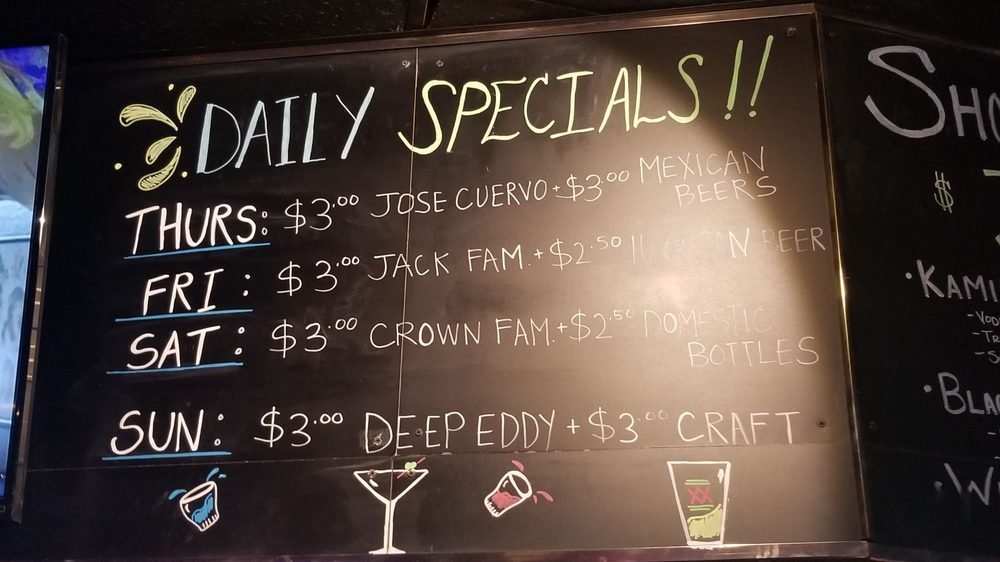 DAILY SPECIALS!!
THURS: $3.00 JOSE CUERVO + $3.00 MEXICAN
BEERS
FRI: $3.00 JACK FAM. + $2.50 16oz CAN BEER
SAT: $3.00 CROWN FAM. + $2.50 DOMESTIC
BOTTLES
SUN: $3.00 DEEP EDDY + $3.00 CRAFT
XX
SHO
$
• KAMI
- VOD
- TR
- S
• BLA
• W